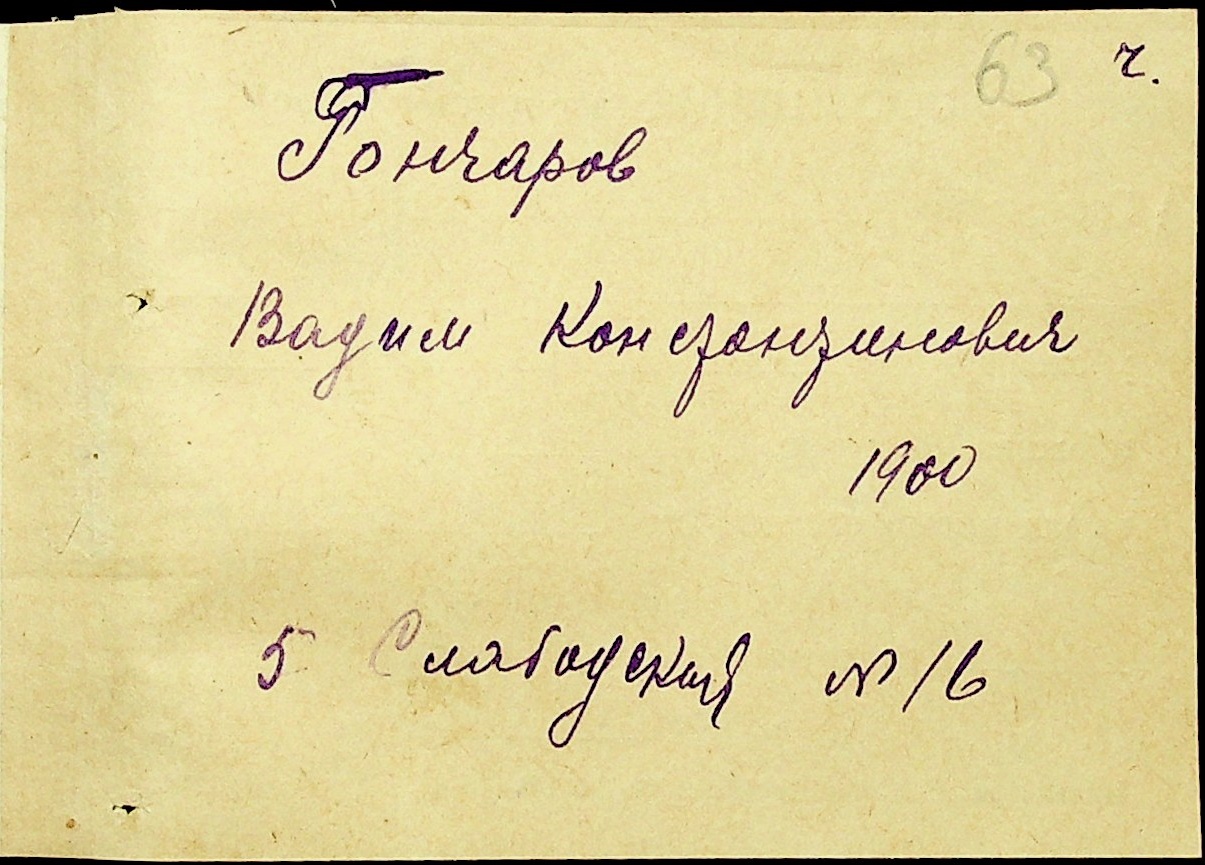 63 ч.
Гончаров
Вадим Константинович
1900
5 Слабодская № 16